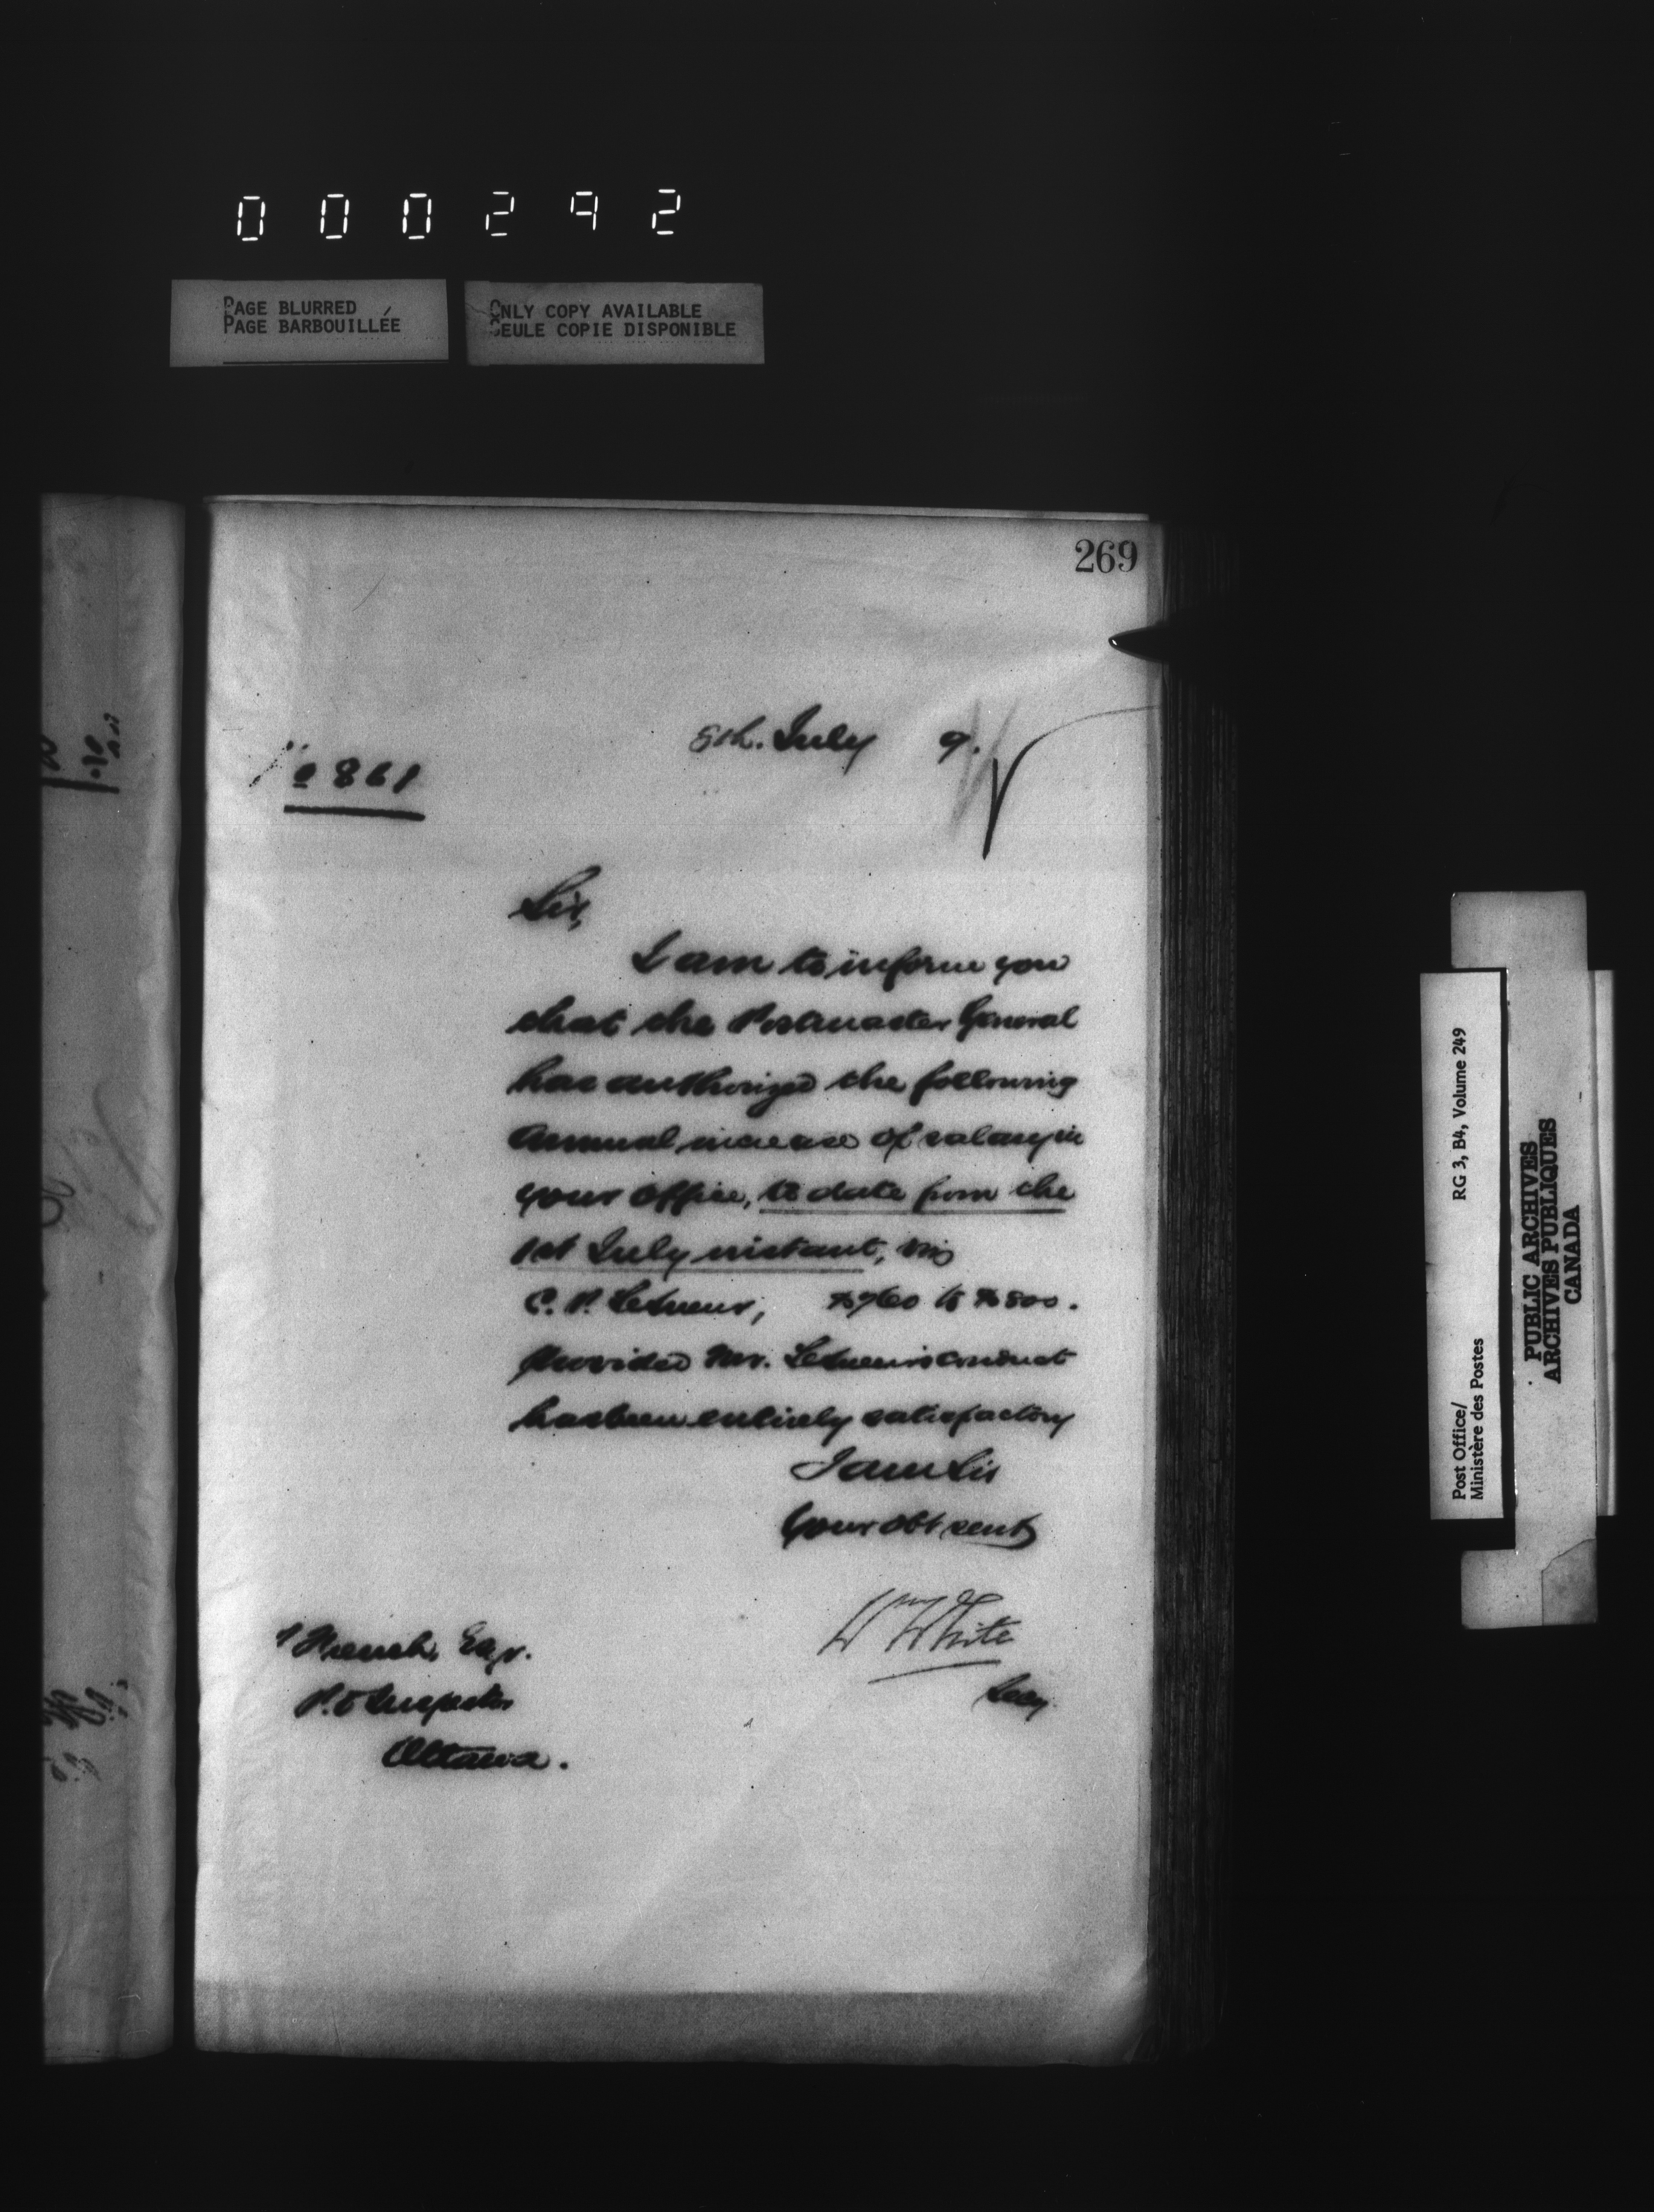 000292
PAGE BLURRED
PAGE BARBOUILLÉE
ONLY COPY AVAILABLE
SEULE COPIE DISPONIBLE
269
8th. July 9.
No 861
Sir,
I am to inform you
that the Postmaster General
has authorized the following
annual increase of salary in
your office, to date from the
1st July instant, viz
C. P. LeSueur, $760 to $800.
provided Mr. LeSueur's conduct
has been entirely satisfactory
I am Sir
Your obt servt
Wm White
Secy.
French, Esqr.
P.O Inspector
Ottawa.
Post Office/
Ministère des Postes
RG 3, B4, Volume 249
PUBLIC ARCHIVES
ARCHIVES PUBLIQUES
CANADA